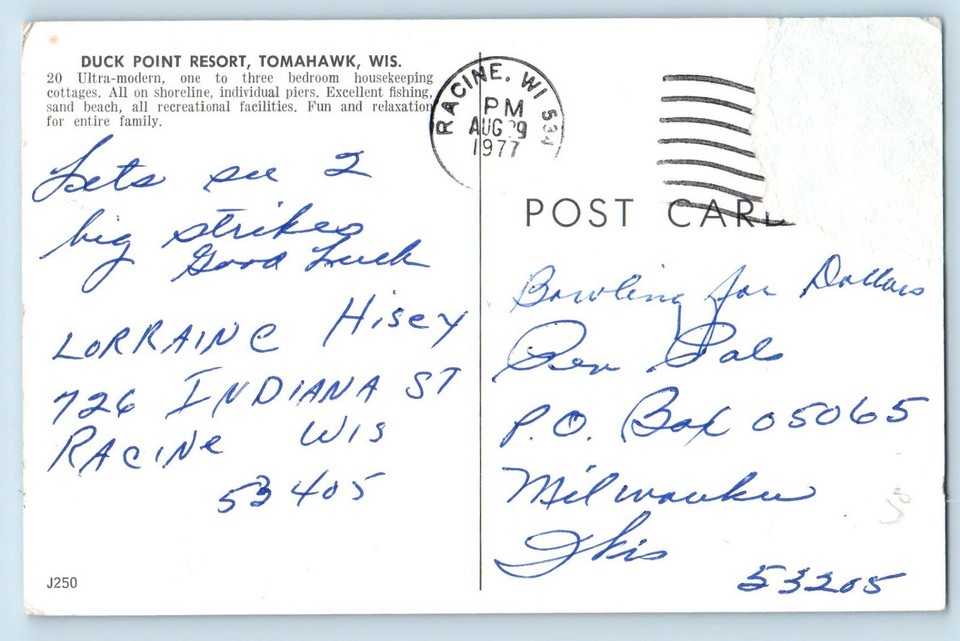 DUCK POINT RESORT, TOMAHAWK, WIS.
20 Ultra-modern, one to three bedroom housekeeping
cottages. All on shoreline, individual piers. Excellent fishing,
sand beach, all recreational facilities. Fun and relaxation
for entire family.
Lets see 2
big strikes
Good Luck
LORRAINE Hisey
726 INDIANA ST
RACINE WIS
53405
J250
RACINE, WI 534
PM
AUG 29
1977
POST CARD
Bowling for Dollars
Pen Pals
P.O. Box 05065
Milwaukee
Wis
53205